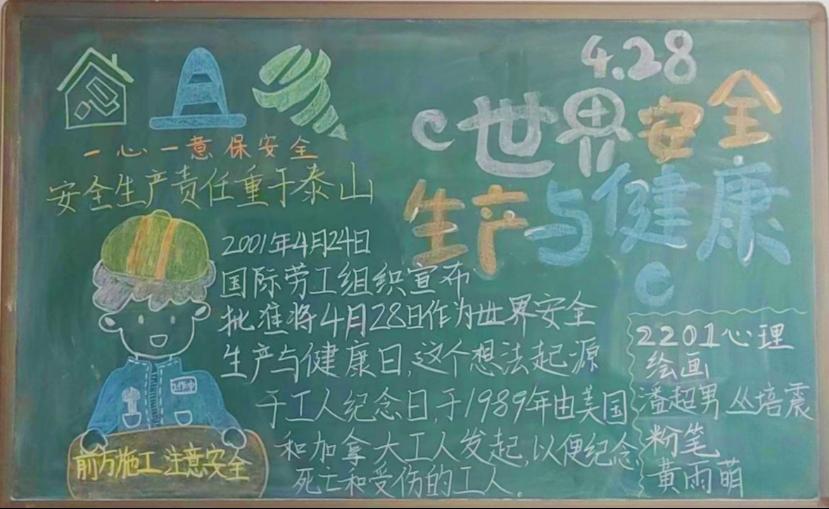 4.28
世界安全
生产与健康
一心一意保安全
安全生产责任重于泰山
2001年4月24日
国际劳工组织宣布
批准将4月28日作为世界安全
生产与健康日,这个想法起源
于工人纪念日,于1989年由美国
和加拿大工人发起,以便纪念
死亡和受伤的工人。
前方施工注意安全
2201心理
绘画
潘起男 丛培震
粉笔
黄雨萌